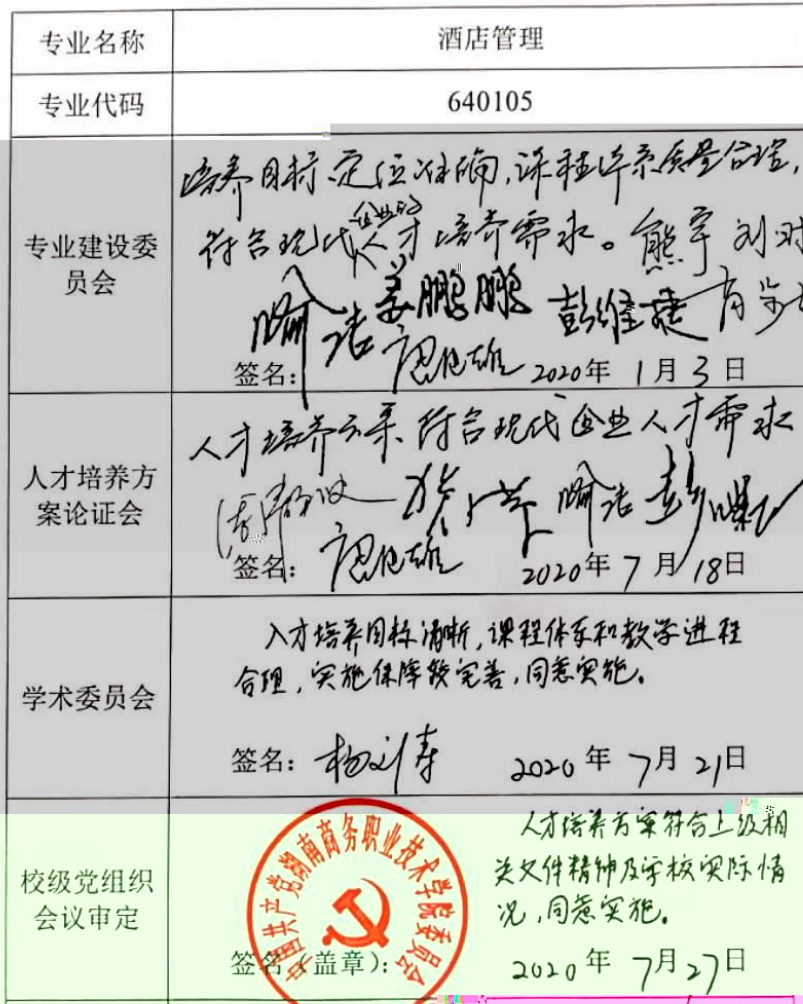 专业名称
酒店管理
专业代码
640105
专业建设委
员会
培养目标定位准确,课程体系质量合理,
企业的
符合现代人才培养需求。熊宇 刘
喻洁 姜鹏鹏 彭维捷 肖
签名: 2020年 1月 3日
人才培养方
案论证会
人才培养方案符合现代企业人才需求
喻洁 彭
签名: 2020年 7月 18日
学术委员会
人才培养目标清晰,课程体系和教学进程
合理,实施保障较完善,同意实施。
签名: 2020年 7月 21日
校级党组织
会议审定
人才培养方案符合上级相
关文件精神及学校实际情
况,同意实施。
中国共产党湖南商务职业技术学院委员会
签名(盖章): 2020年 7月 27日